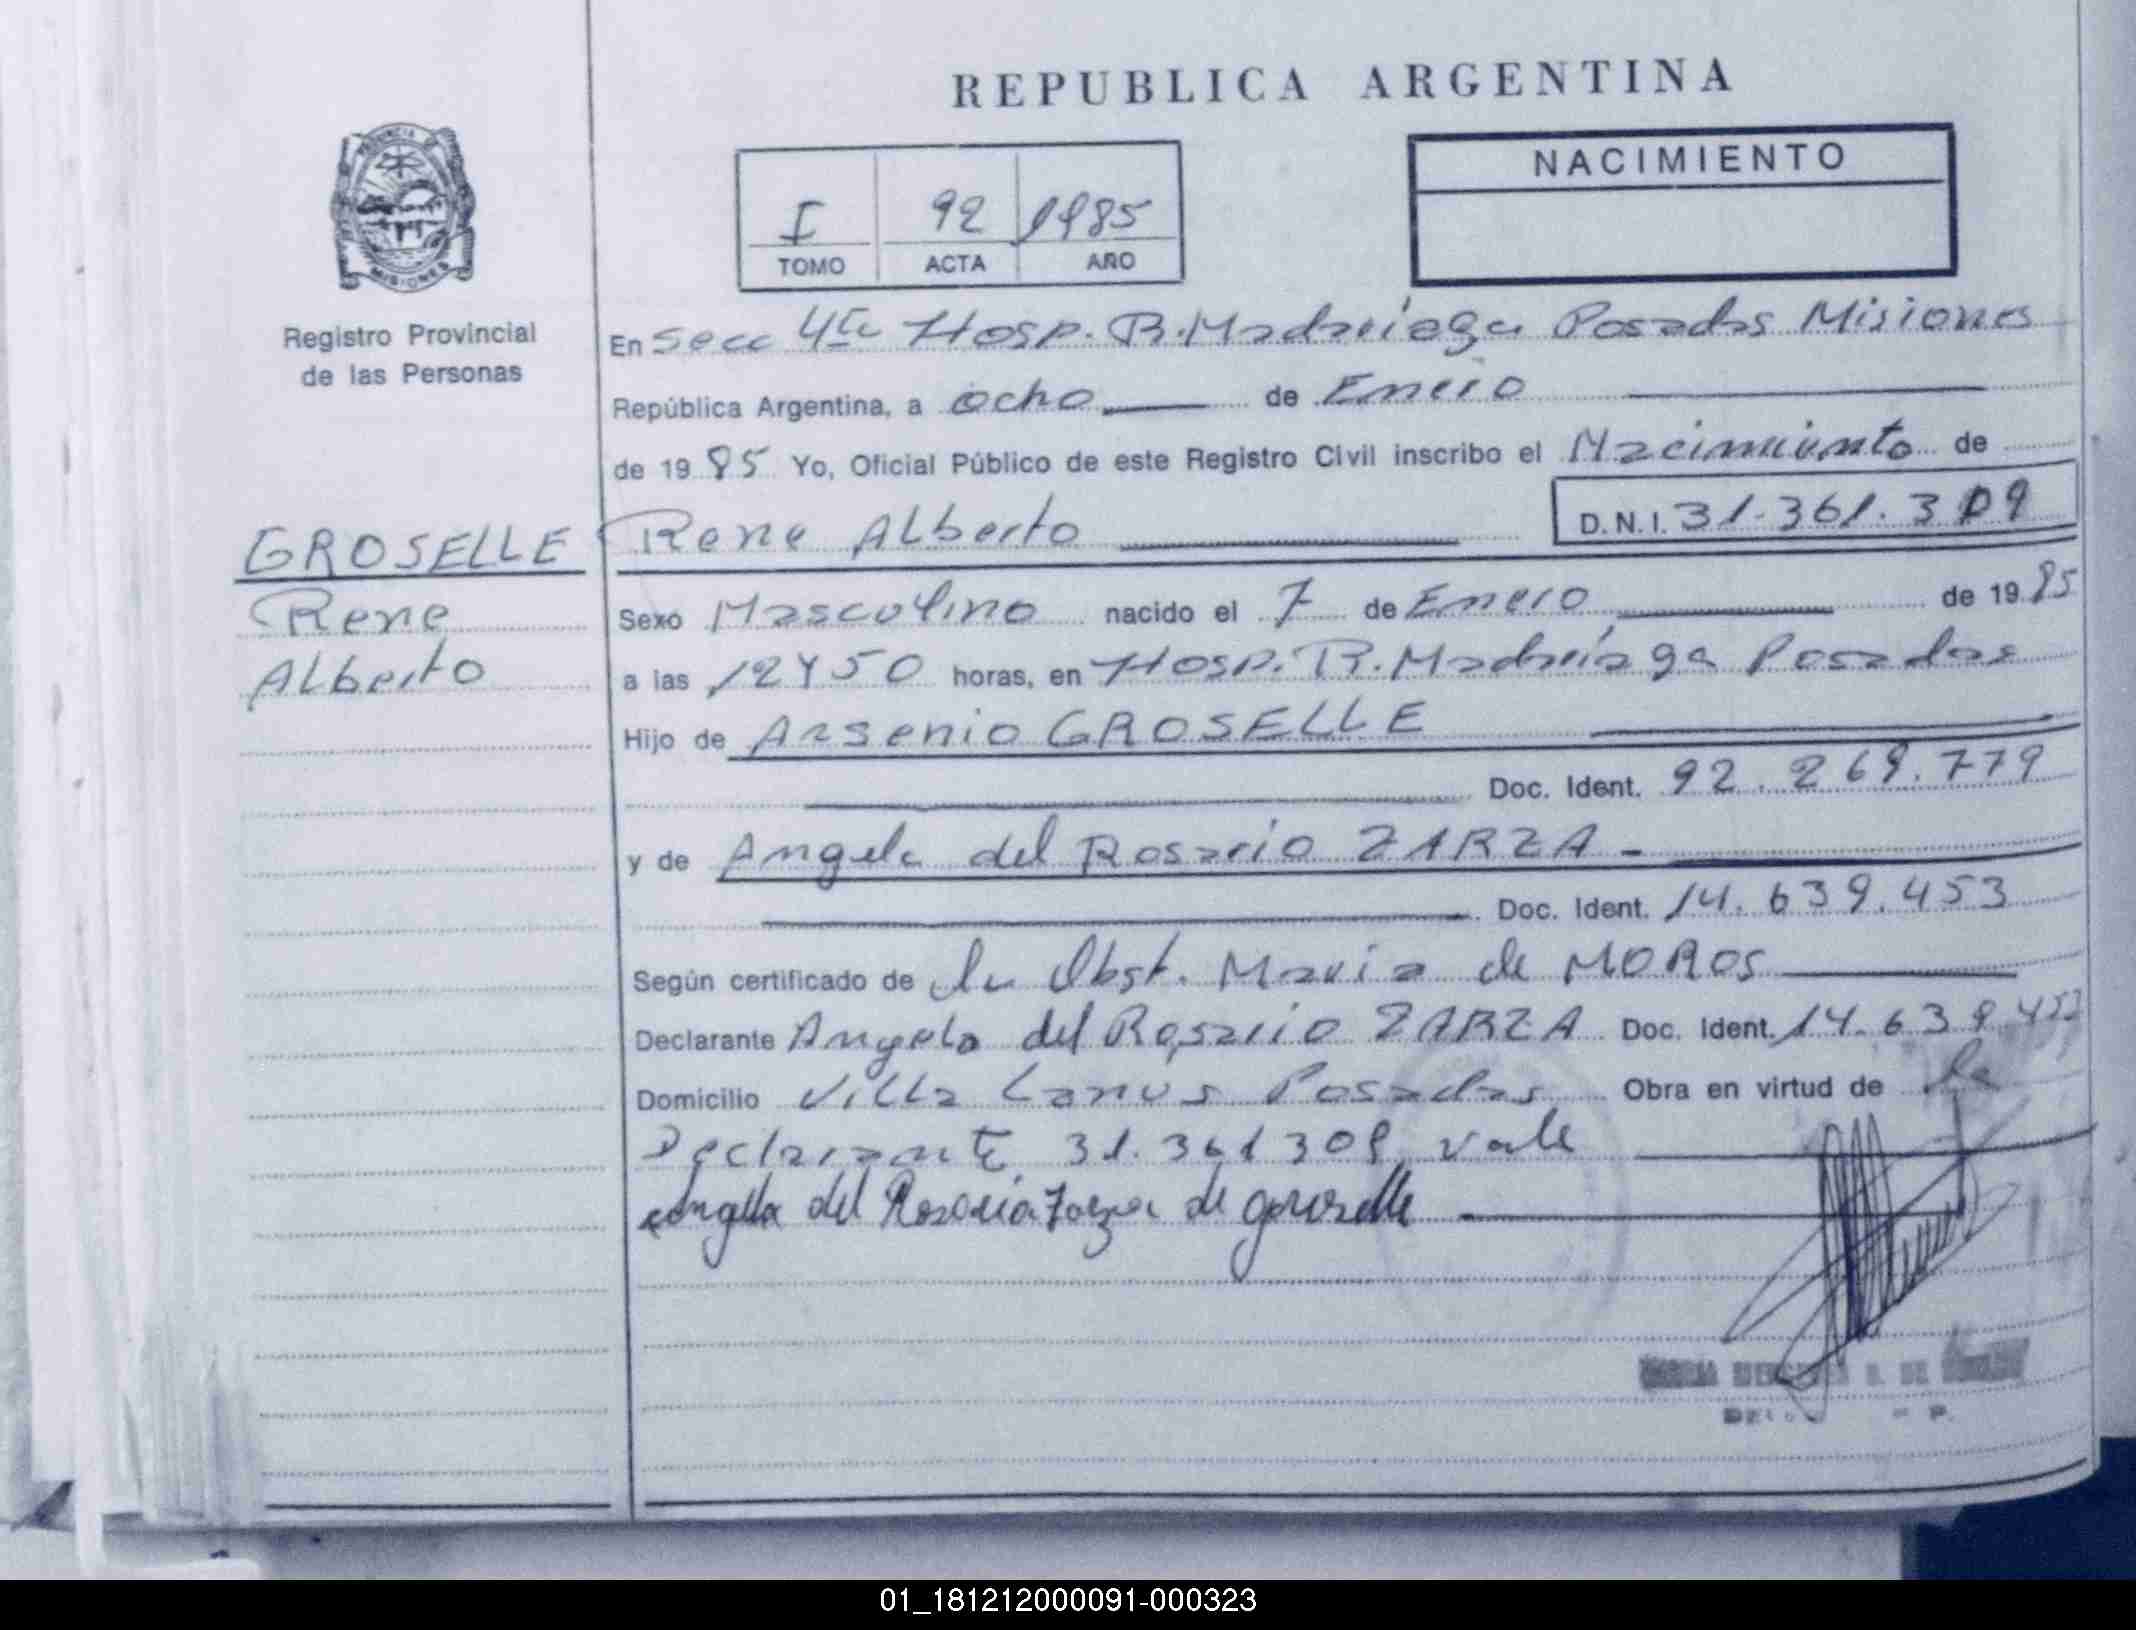 REPUBLICA ARGENTINA
PROVINCIA DE
MISIONES
Registro Provincial
de las Personas
I 92 1985
TOMO ACTA AÑO
NACIMIENTO
En Secc 4ta Hosp. R. Madariaga Posadas Misiones
República Argentina, a ocho de Enero
de 1985 Yo, Oficial Público de este Registro Civil inscribo el Nacimiento de
GROSELLE Rene Alberto D.N.I. 31.361.309
Rene
Alberto
Sexo Masculino nacido el 7 de Enero de 1985
a las 12 Y 50 horas, en Hosp. R. Madariaga Posadas
Hijo de Arsenio GROSELLE
Doc. Ident. 92.269.779
y de Angela del Rosario ZARZA -
Doc. Ident. 14.639.453
Según certificado de la Obst. Maria de MOROS
Declarante Angela del Rosario ZARZA Doc. Ident. 14.639.453
Domicilio Villa Lanus Posadas Obra en virtud de la
Declarante 31.361.309 vale
Angela del Rosario Zarza de groselle
01_181212000091-000323